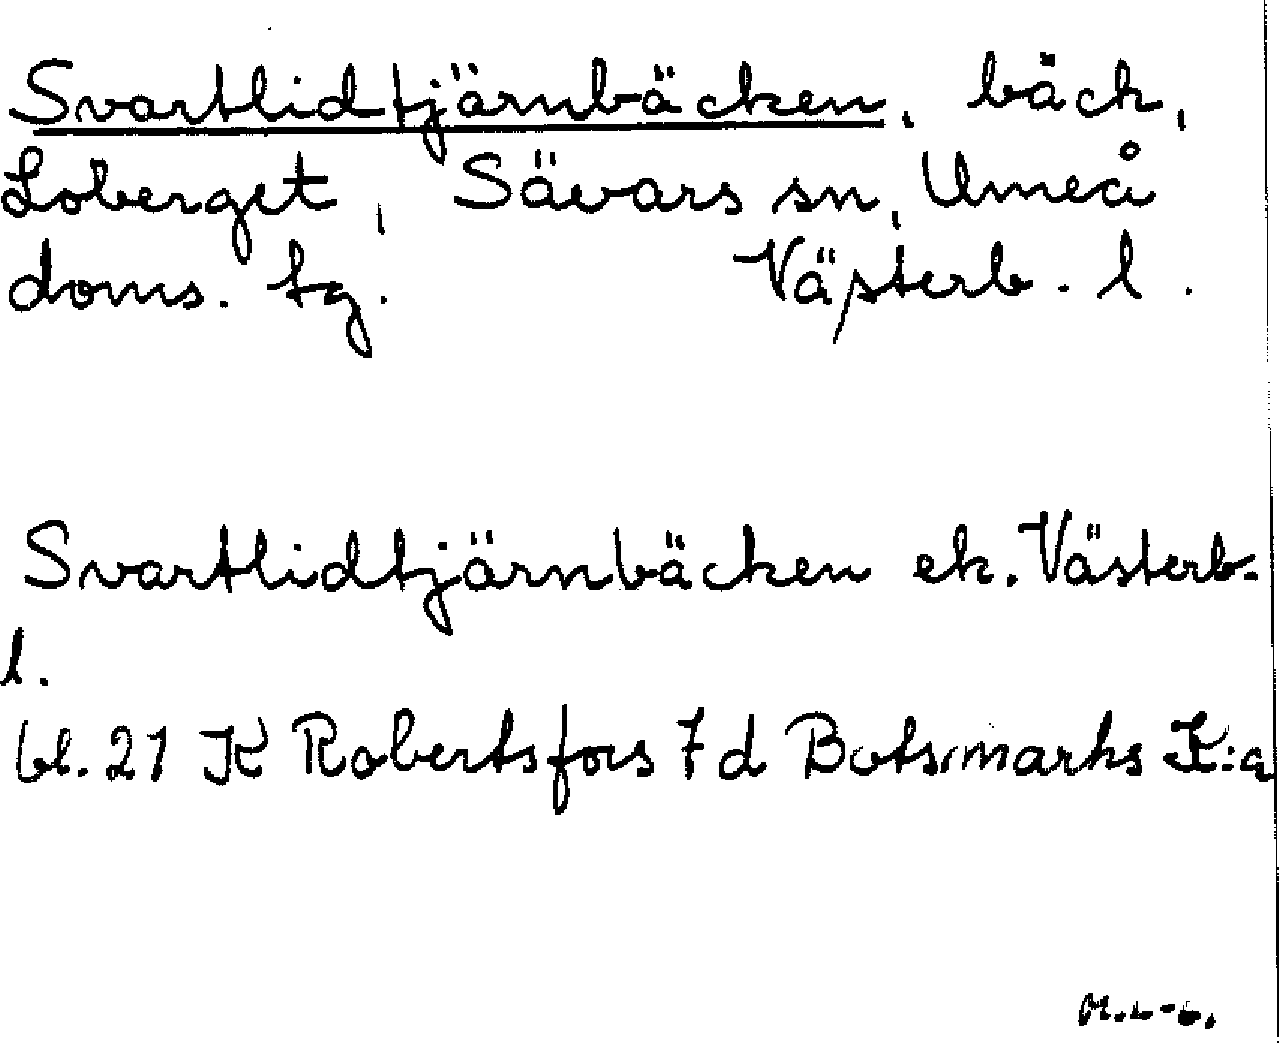 Svartlidtjärnbäcken, bäck,
Loberget, Sävars sn, Umeå
doms. tg. Västerb. l.
Svartlidtjärnbäcken ek. Västerb.
l.
bl. 21 K Robertsfors 7 d Botsmarks K:a